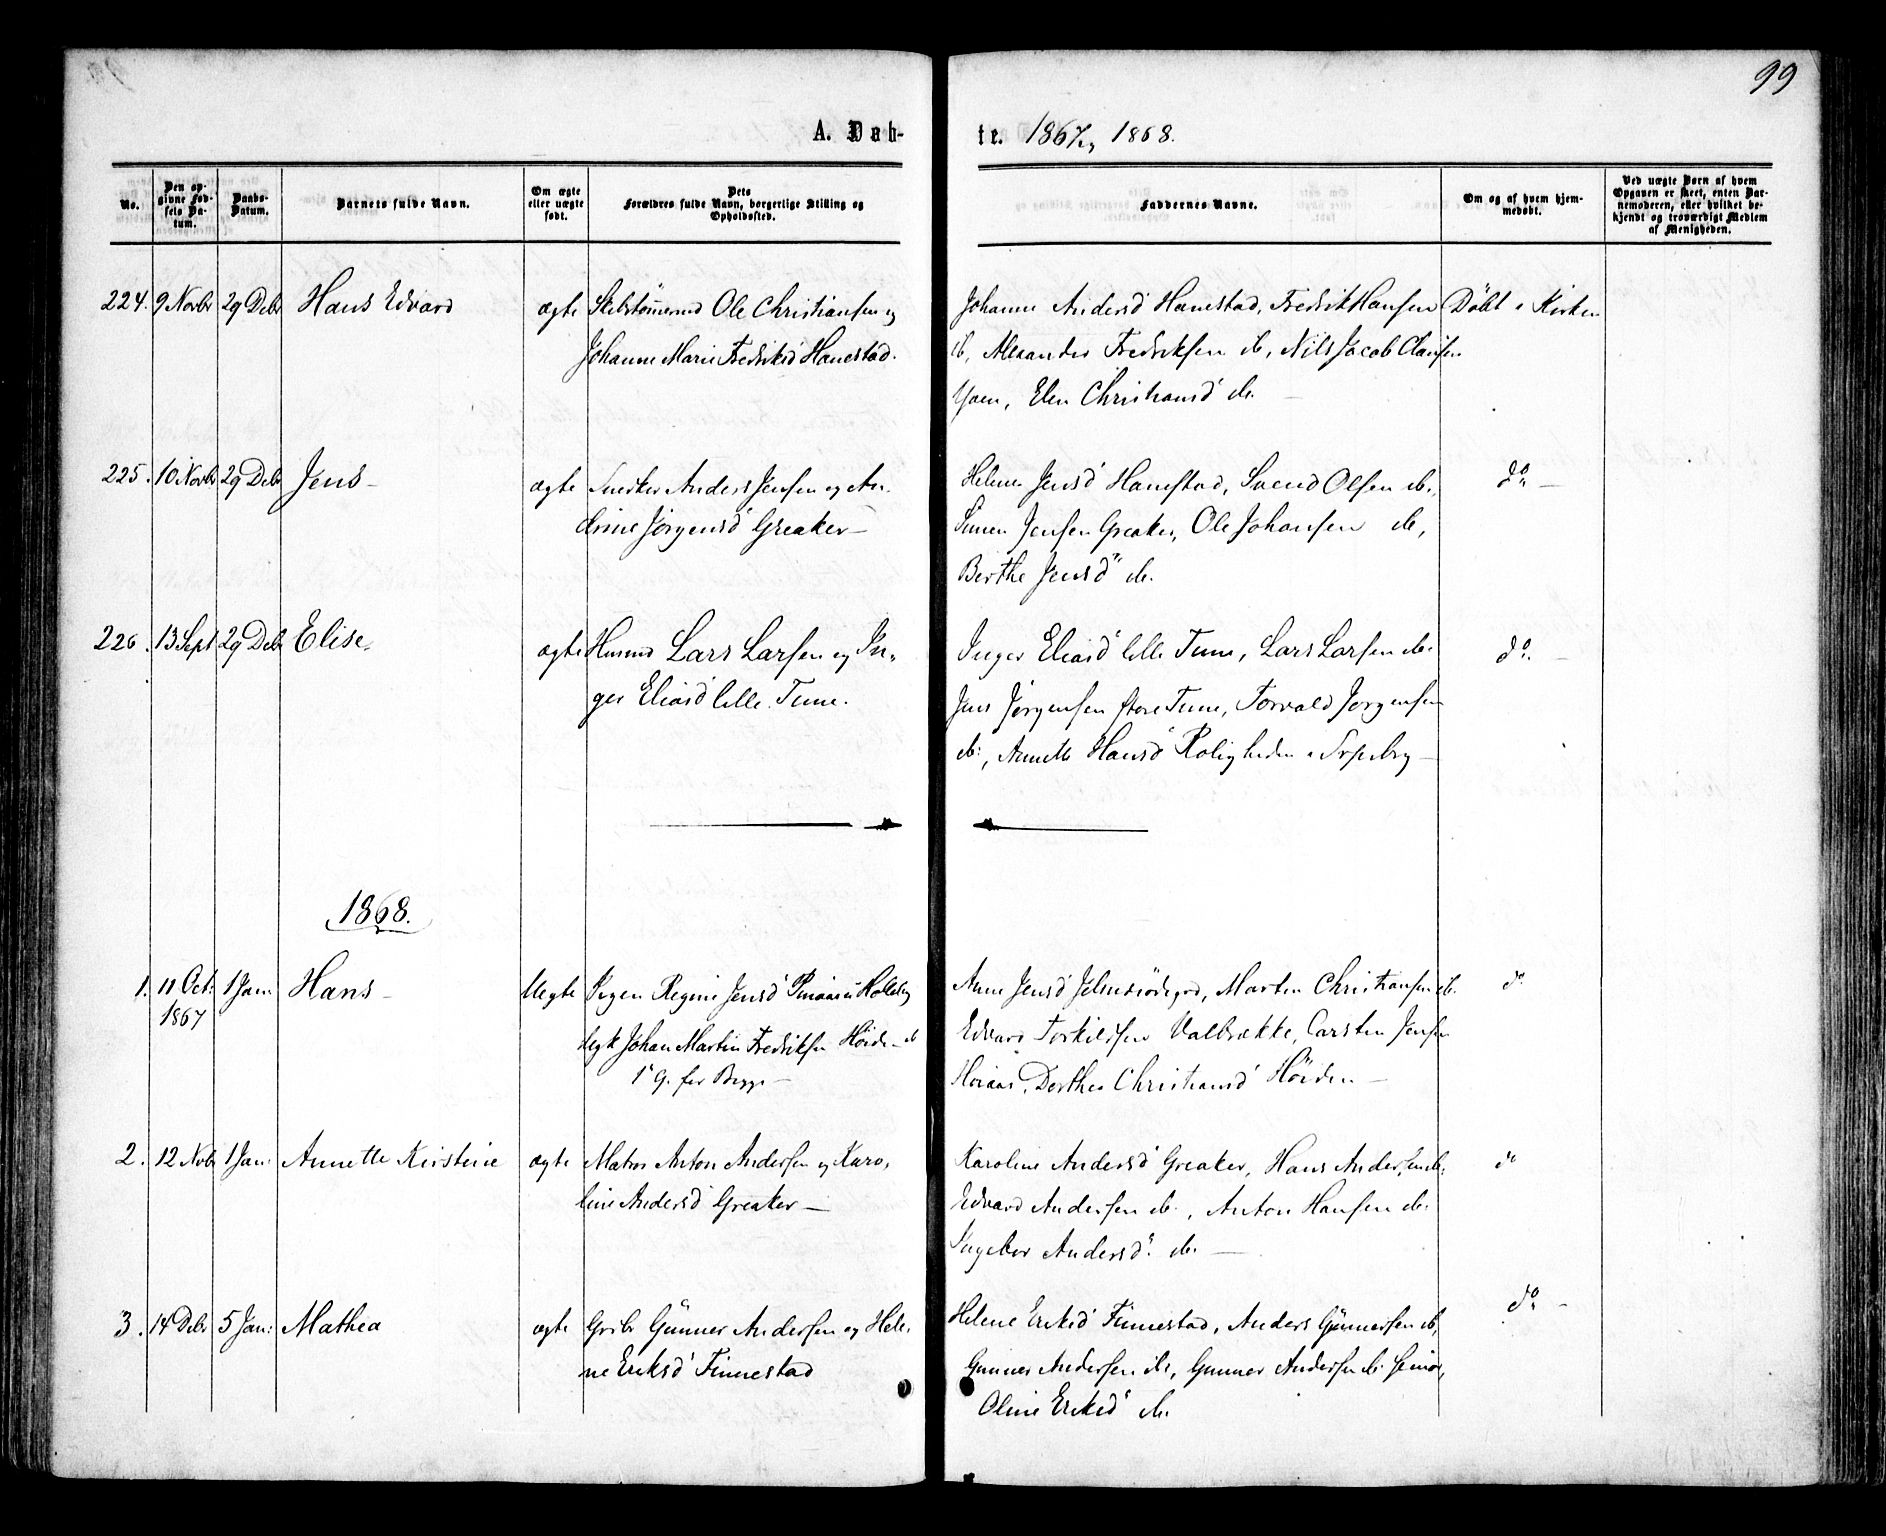 99
A. Døb-
te. 1867 og 1868.
No.
Den op-
givne Fød-
sels Da-
tum.
Daabs-
Datum.
Barnets fulde Navn.
Om ægte
eller uægte
født.
Dets
Forældres fulde Navn, borgerlige Stilling og
Opholdssted.
Faddernes Navne.
Om og af hvem hjem-
medøbt.
Ved uægte Børn af hvem
Opgaven er skeet, enten Bar-
nemoderen, eller hvilket be-
kjendt og troværdigt Medlem
af Menigheden.
224. 9 Novbr 29 Debr Hans Edvard ægte Skibstømmermd Ole Christiansen og
Johanne Marie Fredriksd Hanestad.
Johanne Andersd Hanestad, Fredrik Hansen
ib, Alexander Fredriksen ib, Nils Jacob Clausen
Yven, Elen Christiansd ib.
Døbt i Kirken
225. 10 Novbr 29 Debr Jens ægte Snedker Anders Jensen og An-
drine Jørgensd Greaker
Helene Jensd Hanestad, Svend Olsen ib.,
Simen Jensen Greaker, Ole Johansen ib,
Berthe Jensd ib.
do
226. 13 Sept 29 Debr Elise. ægte Husmd Lars Larsen og In-
ger Eliasd lille Tune.
Inger Eliasd lille Tune, Lars Larsen ib.
Jens Jørgensen store Tune, Torvald Jørgensen
ib., Annette Hansd Roligheden i Sarpsborg
do.
1868.
1. 11 Oct: 1 Jan: Hans Uegte Pigen Regine Jensd
1867
Ugk Johan Martin Fredriksen
1ste G. for Begge
Anne Jensd, Martin Christiansen ib.
Edvard Torkildsen Valbrække, Carsten Jensen
Dorthea Christiansd
do
2. 12 Nobr 1 Jan: Annette Kristine ægte Matros Anton Andersen og Karo-
line Andersd Greaker
Karoline Andersd Greaker, Hans Andersen ib.
Edvard Andersen ib., Anton Hansen ib.
Ingebor Andersd. ib.
do
3. 14 Debr 5 Jan: Mathea ægte Grbr Gunner Andersen og Hele-
ne Eriksd Finnestad
Helene Eriksd Finnestad, Anders Gunnersen ib,
Gunner Andersen ib, Gunner Andersen ib. senior,
Oline Eriksd ib.
do